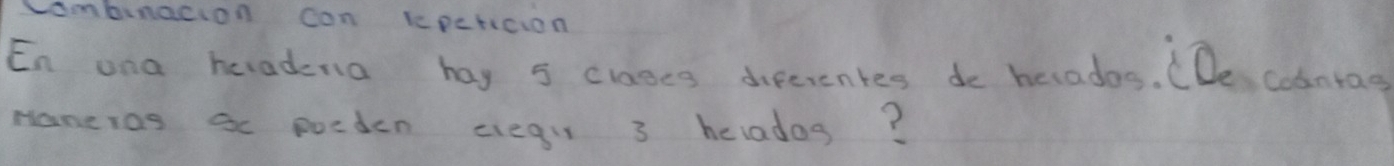 Combinacion con repeticion
En una heladeria hay 5 clases diferentes de helados. ¿De cuántas
Maneras se pueden elegir 3 helados ?